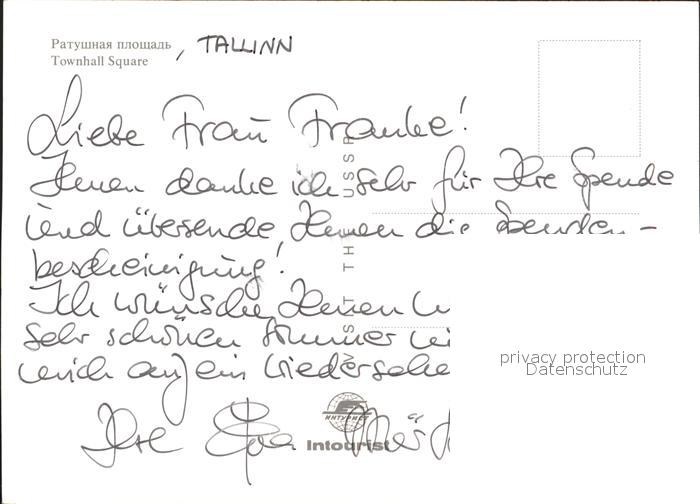 Ратушная площадь
Townhall Square
, TALLINN
Liebe Frau Franke!
Ihnen danke ich sehr für Ihre Spende
und übersende Ihnen die Spenden-
bescheinigung!
Ich wünsche Ihnen
sehr schönen Sommer
mich auf ein Wiedersehe
Ihre Eva
USSR
ИНТУРИСТ
Intourist
privacy protection
Datenschutz